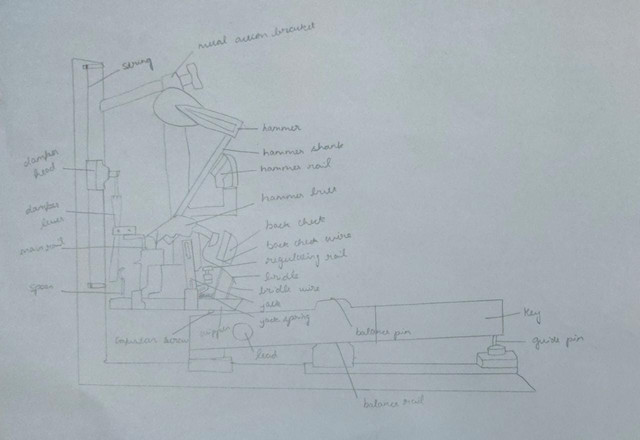 metal action bracket
string
hammer
hammer shank
hammer rail
damper
head
hammer butt
damper
lever
back check
back check wire
main rail
regulating rail
bridle
spoon
bridle wire
jack
jack spring
capstan screw
whippen
balance pin
key
guide pin
lead
balance rail